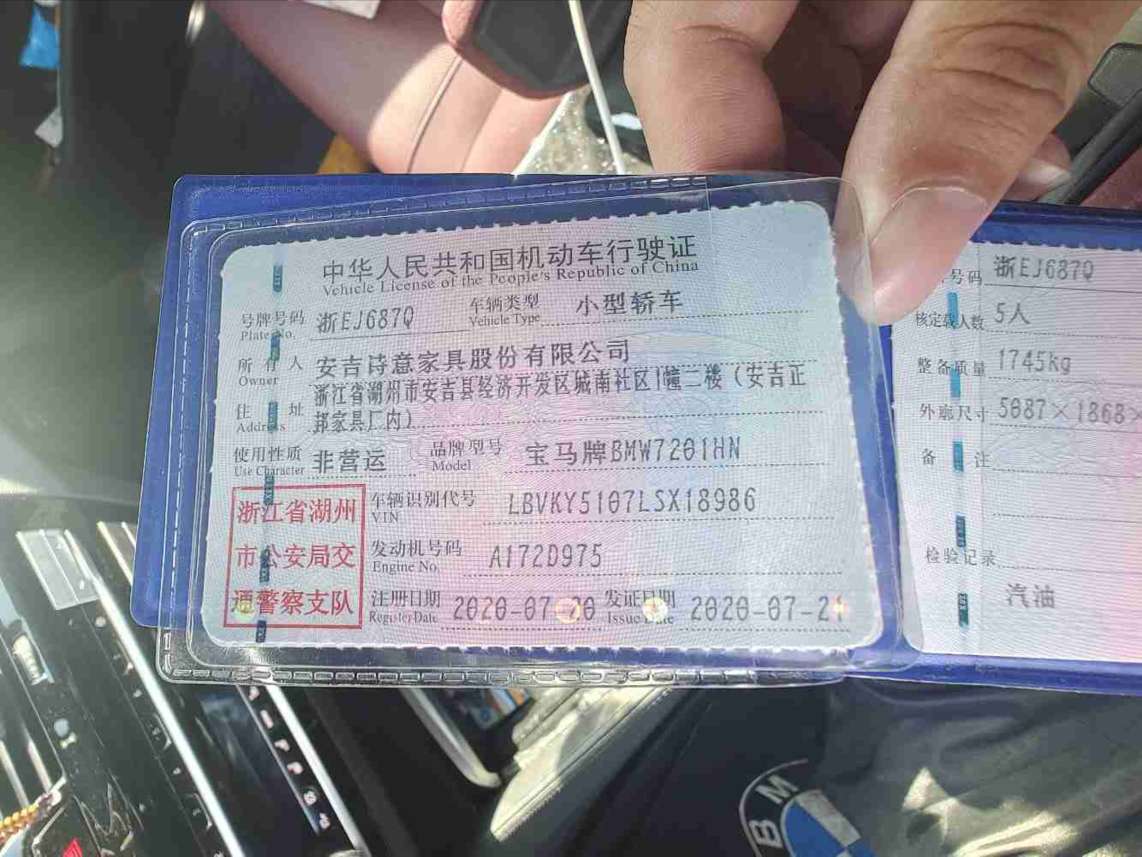 中华人民共和国机动车行驶证
Vehicle License of the People's Republic of China
号牌号码 浙EJ687Q 车辆类型 小型轿车
Plate No. Vehicle Type
所有人 安吉诗意家具股份有限公司
Owner
住址 浙江省湖州市安吉县经济开发区城南社区1幢二楼（安吉正
Address 邦家具厂内）
使用性质 非营运 品牌型号 宝马牌BMW7201HN
Use Character Model
浙江省湖州
市公安局交
通警察支队
车辆识别代号 LBVKY5107LSX18986
VIN
发动机号码 A172D975
Engine No.
注册日期 2020-07-20 发证日期 2020-07-21
Register Date Issue Date
号码 浙EJ687Q
核定载人数 5人
整备质量 1745kg
外廓尺寸 5087×1868×
备注
检验记录
汽油
BM